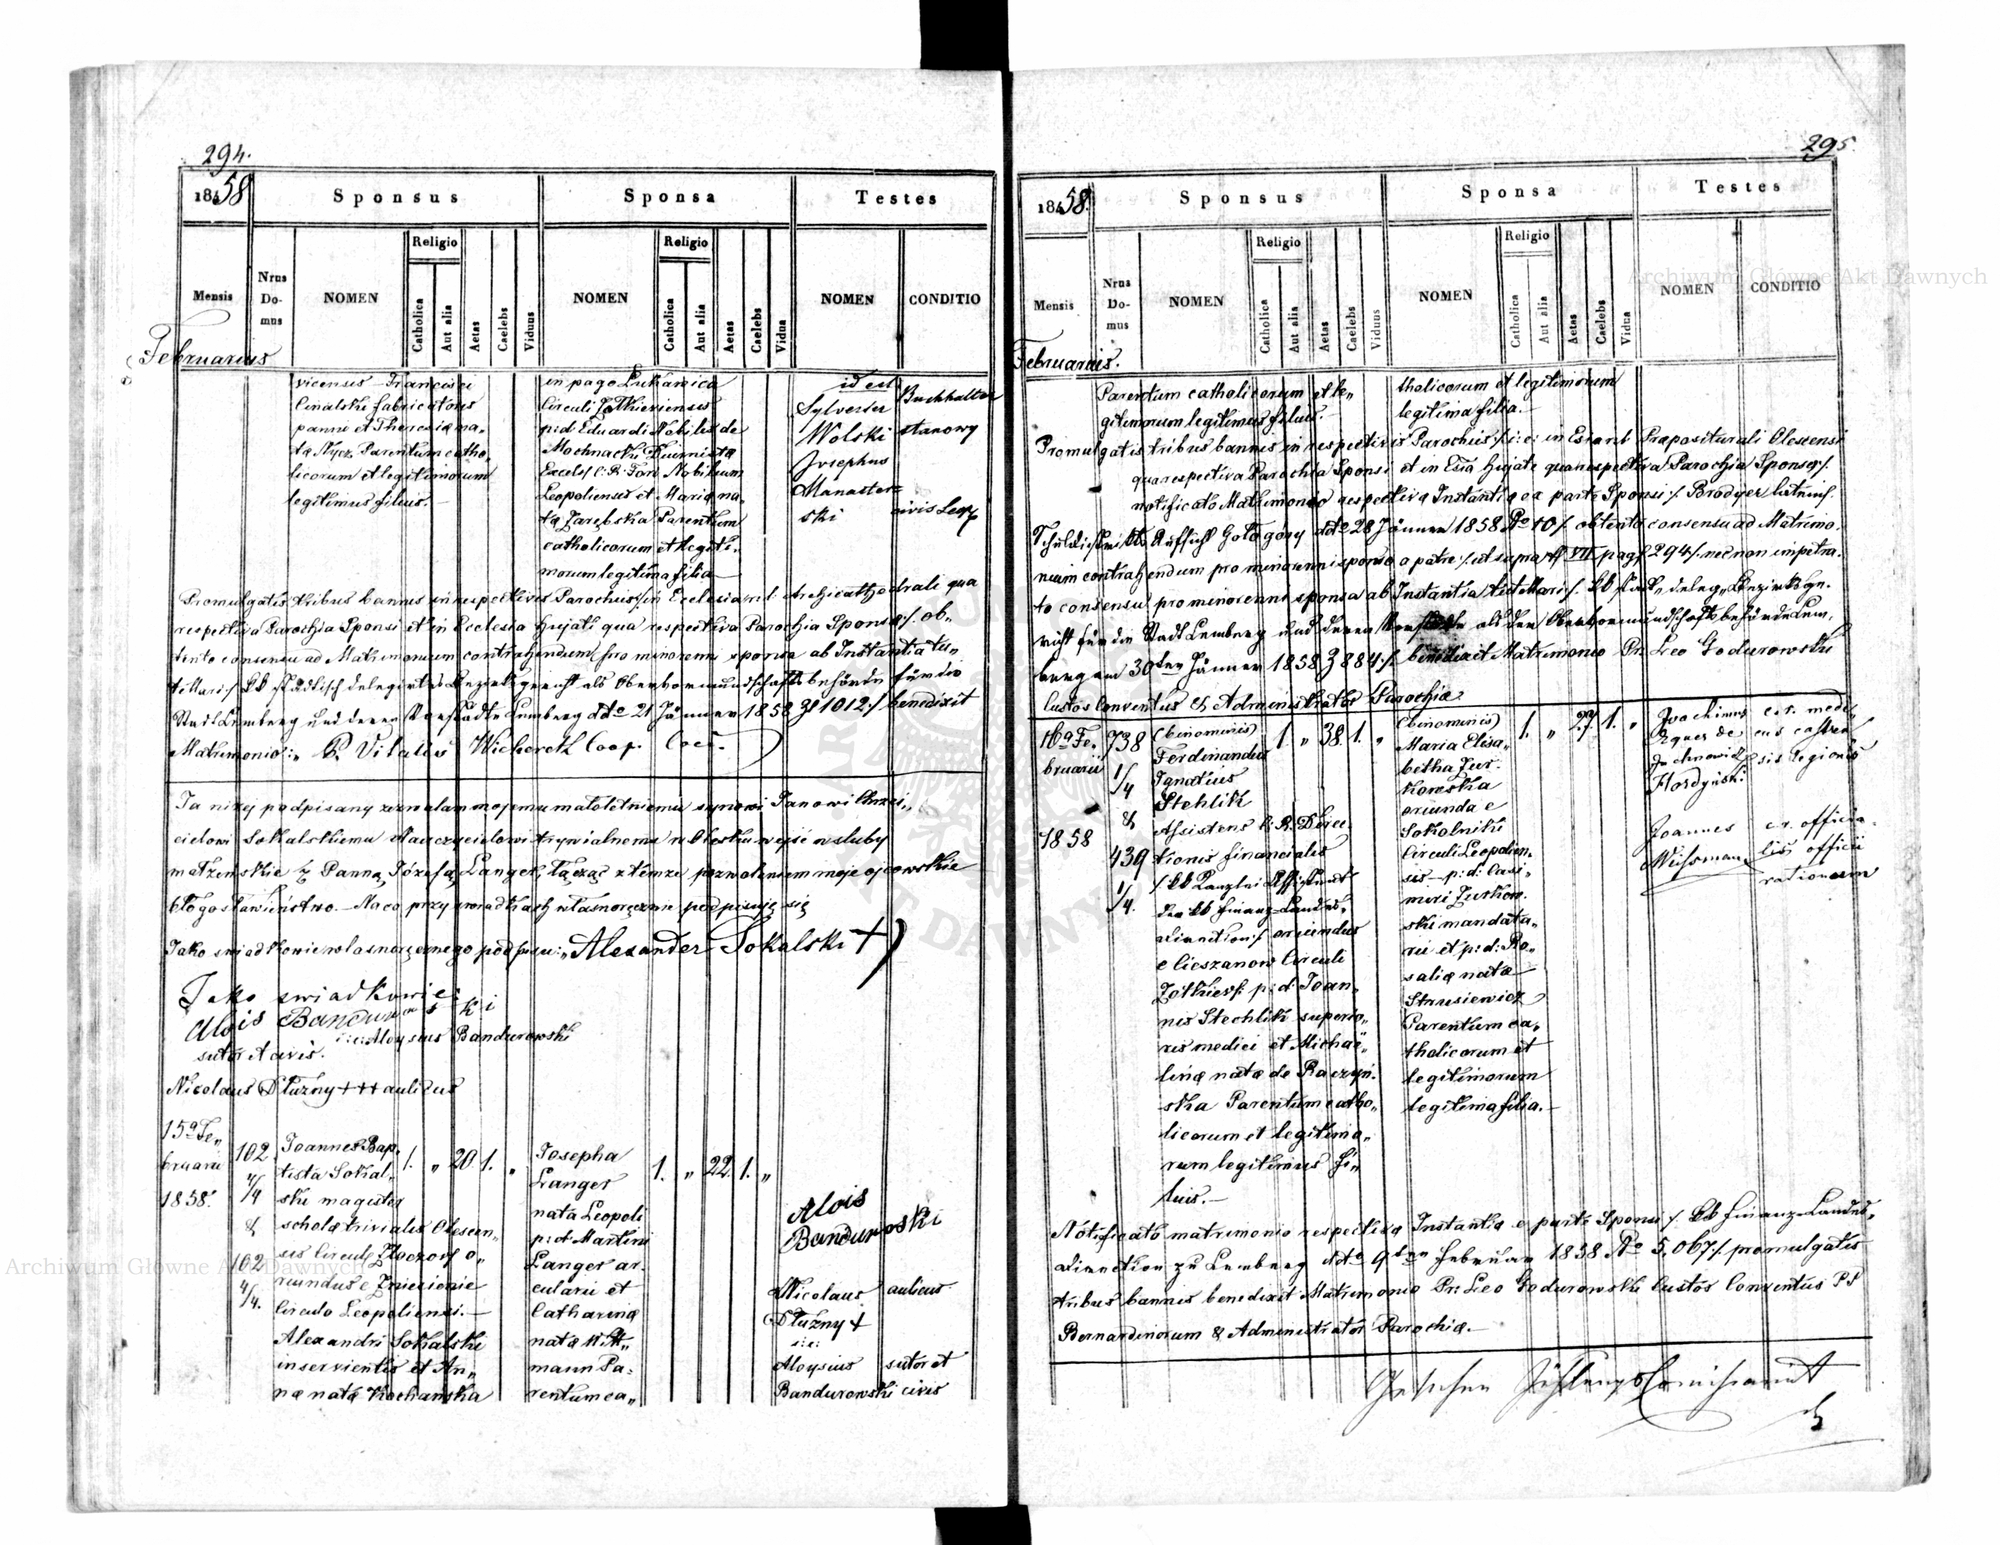 294.
1858
Sponsus
Sponsa
Testes
Mensis
Nrus Domus
NOMEN
Religio
Catholica
Aut alia
Aetas
Caelebs
Viduus
NOMEN
Religio
Catholica
Aut alia
Aetas
Caelebs
Vidua
NOMEN
CONDITIO
Februarius
vicensis Francisci
panni et Theresiæ na„
Parentum catho„
licorum et legitimorum
legitimus filius.—
in pago Lukawica
Circuli Zolkieviensis
p: d: Eduardi Nobilis de
Mochnacki
Leopoliensis et Mariæ na„
ta Zarębska Parentum
catholicorum et legiti„
morum legitima filia—
id est
Sylvester
Wolski
Josephus
Manaster„
ski
Buchhalter
stanowy
civis Leop.
Promulgatis tribus bannis in respectivis Parochiis /: in Ecclesia r: l: Archicathedrali qua
respectiva Parochia Sponsi et in Ecclesia hujati qua respectiva Parochia Sponsæ /: ob„
tento consensu ad Matrimonium contrahendum pro minorenni sponsa ab Instantia tu„
telari /: kk städtisch delegirtes Bezirksgericht als Obervormundschaftsbehörde für die
Stadt Lemberg und deren Vorstädte Lemberg ddto 21 Jänner 1858 Zl 1012 :/ benedixit
Matrimonio:„ P. Vitalis Coop.
Ja niżej podpisany zezwalam mojemu małoletniemu synowi Janowi Chrzci„
cielowi Sokalskiemu Nauczycielowi trywialnemu w Olesku wejść w śluby
małżeńskie z Panną Józefą Langer, łącząc z temże pozwoleniem moje ojcowskie
błogosławieństwo.— Na co przy świadkach własnoręcznie podpisuję się
Jako świadkowie własnoręcznego podpisu:„ Alexander Sokalski +)
Jako świadkowie:
Alois Bandurowski
i: e: Aloysius Bandurowski
sutor et civis.
Nicolaus Dłużny +++ aulicus
15a Fe„
bruarii
1858.
102
4/4
&
102
4/4.
Joannes Bap„
tista Sokal„
ski magister
scholæ trivialis Olescen„
sis Circuli Złoczow o„
riundus e Zniesienie
Circulo Leopoliensi.—
Alexandri Sokalski
inservientis et An„
næ natæ Kochańska
1. „ 20 1. „
Josepha
Langer
nata Leopoli
p: d: Martini
Langer ar„
cularii et
Catharinæ
natæ Witt„
mann Pa„
rentum ca„
1. „ 22. 1. „
Alois
Bandurowski
Nicolaus
Dłużny +
i: e:
Aloysius
Bandurowski
aulicus
sutor et
civis
295.
1858.
Sponsus
Sponsa
Testes
Mensis
Nrus Domus
NOMEN
Religio
Catholica
Aut alia
Aetas
Caelebs
Viduus
NOMEN
Religio
Catholica
Aut alia
Aetas
Caelebs
Vidua
NOMEN
CONDITIO
Februarius.
Parentum catholicorum et le„
gitimorum legitimus filius.—
tholicorum et legitimorum
legitima filia.—
Promulgatis tribus bannis in respectivis Parochiis /: i: e: in Præpositurali Olescensi
qua respectiva Parochia Sponsi et in hujate qua respectiva Parochia Sponsæ /:
notificato Matrimonio respectivæ Instantiæ ex parte Sponsi /:
Gołogóry ddto 28 Jänner 1858 No 10 /: obtento consensu ad Matrimo„
nium contrahendum pro minorenni sponso a patre /: ut supra VII pag 294 /: nec non impetra„
to consensu pro minorenni sponsa ab Instantia tutellari /:
richt für die Stadt Lemberg und deren als der Obervormundschaftsbehörde Lem„
berg am 30ten Jänner 1858 Z 884 :/ benedixit Matrimonio Pr. Leo Godurowski
Custos Conventus & Administrator Parochiæ.
16a Fe„
bruarii
1858
738
1/4
&
439
1/4.
(binominis)
Ferdinandus
Ignatius
Stehlik
Assistens K. R. Direc„
tionis financialis
/: kk Kanzlei Assistent
der kk Finanz=Landes„
direction /: oriundus
e Cieszanow Circuli
Zołkiew: p: d: Joan„
nis Stechlik superio„
ris medici et Michaë„
linæ natæ de Raczyń„
ska Parentum catho„
licorum et legitimo„
rum legitimus fi„
lius.—
1. „ 38. 1. „
(binominis)
Maria Elisa„
betha Żur„
kowska
oriunda e
Sokolniki
Circuli Leopolien„
sis— p: d: Casi„
miri Żurkow„
ski mandata„
rii et p: d: Ro„
saliæ natæ
Strusiewicz
Parentum ca„
tholicorum et
legitimorum
legitima filia.—
1. „ 27 1. „
Joachimus
Eques de
Hordyński
Joannes
c. r. medi„
cus castren„
sis legionis
c. r. officia„
lis officii
rationum
Notificato matrimonio respectivæ Instantiæ e parte Sponsi /: kk Finanz=Landes„
direction zu Lemberg ddto 9ten Februar 1858 No 5,067 /: promulgatis
tribus bannis benedixit Matrimonio Pr: Leo Godurowski Custos Conventus PP
Bernardinorum & Administrator Parochiæ.—
Archiwum Główne Akt Dawnych
Archiwum Główne Akt Dawnych